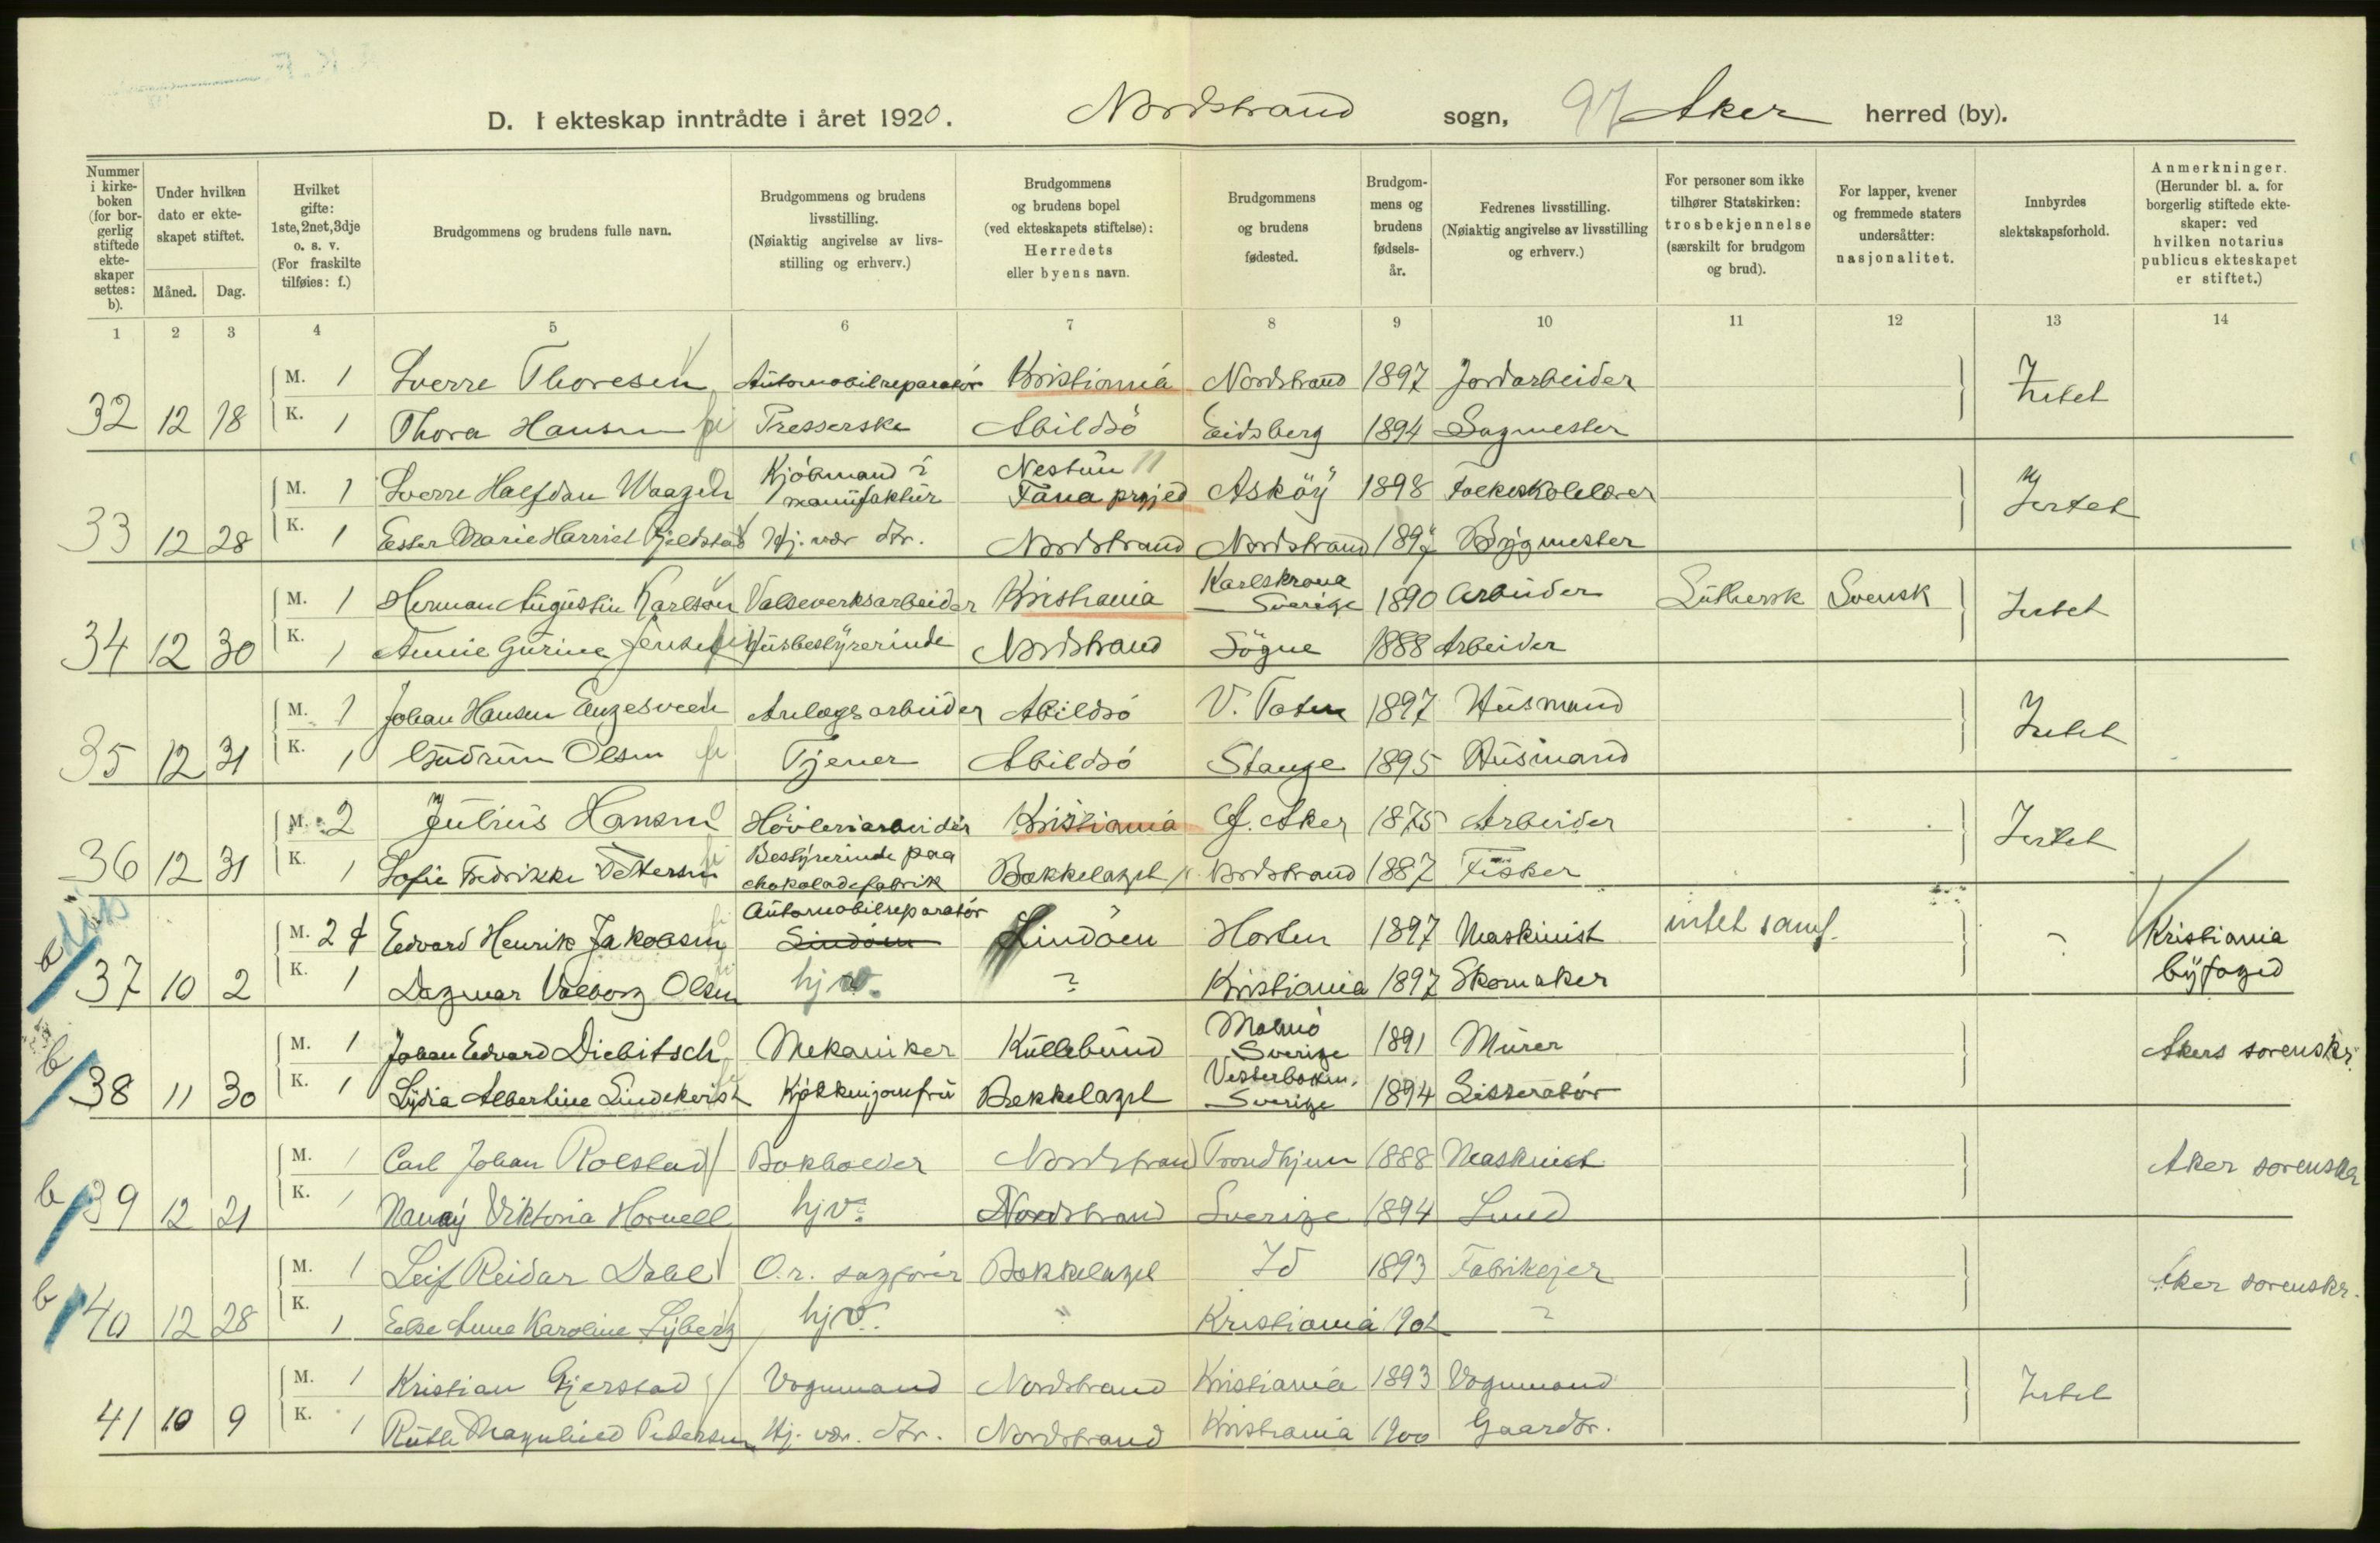 D. I ekteskap inntrådte i året 1920. Nordstrand sogn, 97 Aker herred (by).
Nummer i kirke-boken (for bor-gerlig stiftede ekte-skaper settes: b).
Under hvilken dato er ekte-skapet stiftet.
Måned. Dag.
Hvilket gifte: 1ste, 2net, 3dje o. s. v. (For fraskilte tilføies: f.)
Brudgommens og brudens fulle navn.
Brudgommens og brudens livsstilling. (Nøiaktig angivelse av livs-stilling og erhverv.)
Brudgommens og brudens bopel (ved ekteskapets stiftelse): Herredets eller byens navn.
Brudgommens og brudens fødested.
Brudgom-mens og brudens fødsels-år.
Fedrenes livsstilling. (Nøiaktig angivelse av livsstilling og erhverv.)
For personer som ikke tilhører Statskirken: trosbekjennelse (særskilt for brudgom og brud).
For lapper, kvener og fremmede staters undersåtter: nasjonalitet.
Innbyrdes slektskapsforhold.
Anmerkninger. (Herunder bl. a. for borgerlig stiftede ekte-skaper: ved hvilken notarius publicus ekteskapet er stiftet.)
1 2 3 4 5 6 7 8 9 10 11 12 13 14
M. 1 Sverre Thoresen Automobilreparatör Kristiania Nordstrand 1897 Jordarbeider Intet
32 12 18 K. 1 Thora Hansen Presserske Abildsö Eidsberg 1894 Sagmester
M. 1 Sverre Halfdan Waagen Kjöbmand i manufaktur Nestun Fana Asköy 1898 Folkeskolelærer Intet
33 12 28 K. 1 Ester Marie Harriet Gjeldstad Hj. vær. dtr. Nordstrand Nordstrand Bygmester
M. 1 Herman Augustin Karlson Valseverksarbeider Kristiania Karlskrona Sverige 1890 Arbeider Luthersk Svensk Intet
34 12 30 K. 1 Annie Gurine Jensen Husbestyrerinde Nordstrand Sögne 1888 Arbeider
M. 1 Johan Hansen Engesveen Anlægsarbeider Abildsö V. Toten 1897 Husmand Intet
35 12 31 K. 1 Gudrun Olsen Tjener Abildsö Stange 1895 Husmand
M. 2 Julius Hansen Hövleriarbeider Kristiania Aker 1875 Arbeider Intet
36 12 31 K. 1 Sofie Fredrikke Pettersen Bestyrerinde paa chokoladefabrik Bækkelaget Nordstrand 1887 Fisker
b M. 2 f Edvard Henrik Jakobsen Automobilreparatör Lindöen Horten 1897 Maskinist intet samf. Kristiania byfoged
37 10 2 K. 1 Dagmar Valborg Olsen hjv. ? Kristiania 1897 Skomaker
b M. 1 Johan Edvard Diebitsch Mekaniker Kullebund Malmö Sverige 1891 Murer Akers sorenskr.
38 11 30 K. 1 Lydia Albertine Lindekvist Kjökkenjomfru Bækkelaget Sverige 1894
b M. 1 Carl Johan Rolstad Bokholder Nordstrand Trondhjem 1888 Maskinist Aker sorenskr
39 12 21 K. 1 Nanny Viktoria Hornell hjv. Nordstrand Sverige 1894 Smed
b M. 1 Leif Reidar Dahl O.r. sagförer Bækkelaget Id 1893 Fabrikejer Aker sorenskr.
40 12 28 K. 1 Else Anne Karoline Lyberg hjv. " Kristiania 1901 ?
M. 1 Kristian Gjerstad Vognmand Nordstrand Kristiania 1893 Vognmand Intet
41 10 9 K. 1 Ruth Magnhild Pedersen Hj. vær. dtr. Nordstrand Kristiania 1900 Gaardbr.